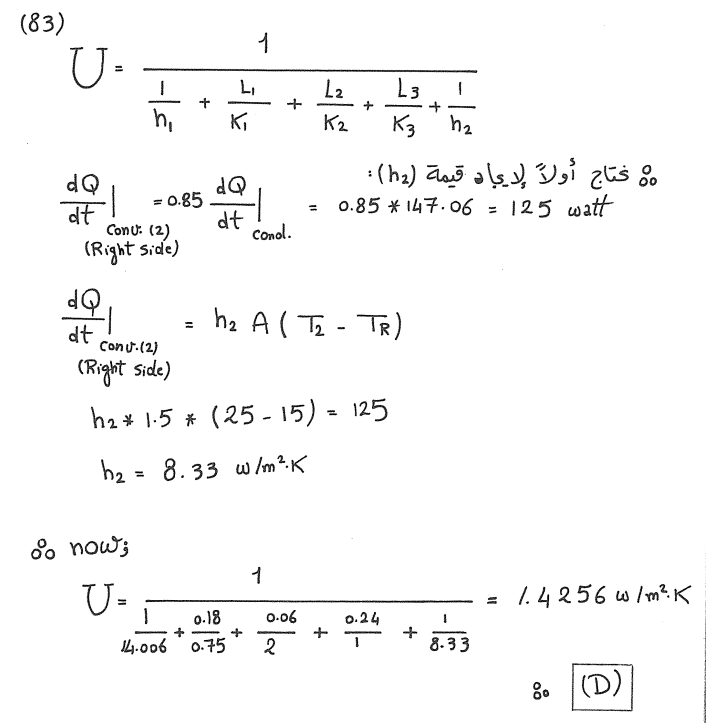 (83)
U = 1 / (1/h₁ + L₁/K₁ + L₂/K₂ + L₃/K₃ + 1/h₂)
∴ نحتاج أولاً لإيجاد قيمة (h₂):
dQ/dt | Conv. (2) (Right side) = 0.85 dQ/dt | Cond. = 0.85 * 147.06 = 125 watt
dQ/dt | Conv. (2) (Right side) = h₂ A ( T₂ - TR )
h₂ * 1.5 * (25 - 15) = 125
h₂ = 8.33 w/m².K
∴ now;
U = 1 / (1/14.006 + 0.18/0.75 + 0.06/2 + 0.24/1 + 1/8.33) = 1.4256 w/m².K
∴ (D)